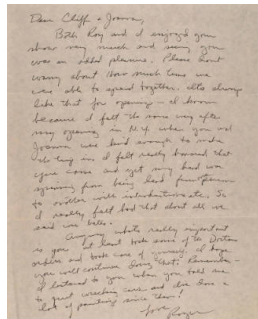 Dear Cliff & Joanna,
Both Roy and I enjoyed your
show very much and seeing you
was an added pleasure. Please don't
worry about how much time we
were able to spend together. It's always
like that for openings — I know
because I felt the same way after
my opening in N.Y. when you and
Joanna were kind enough to make
the trip in. I felt really honored that
you came and yet my head was
spinning from being from person
to another with introductions etc. So
I really felt bad that about all we
said was hello.
Anyway what's really important
is you at least took some of the Doctors
orders and took care of yourself. I hope
you will continue doing that! Remember
I listened to you when you told me
to quit wrecking cars and I've done a
lot of painting since then!
Love
Roger